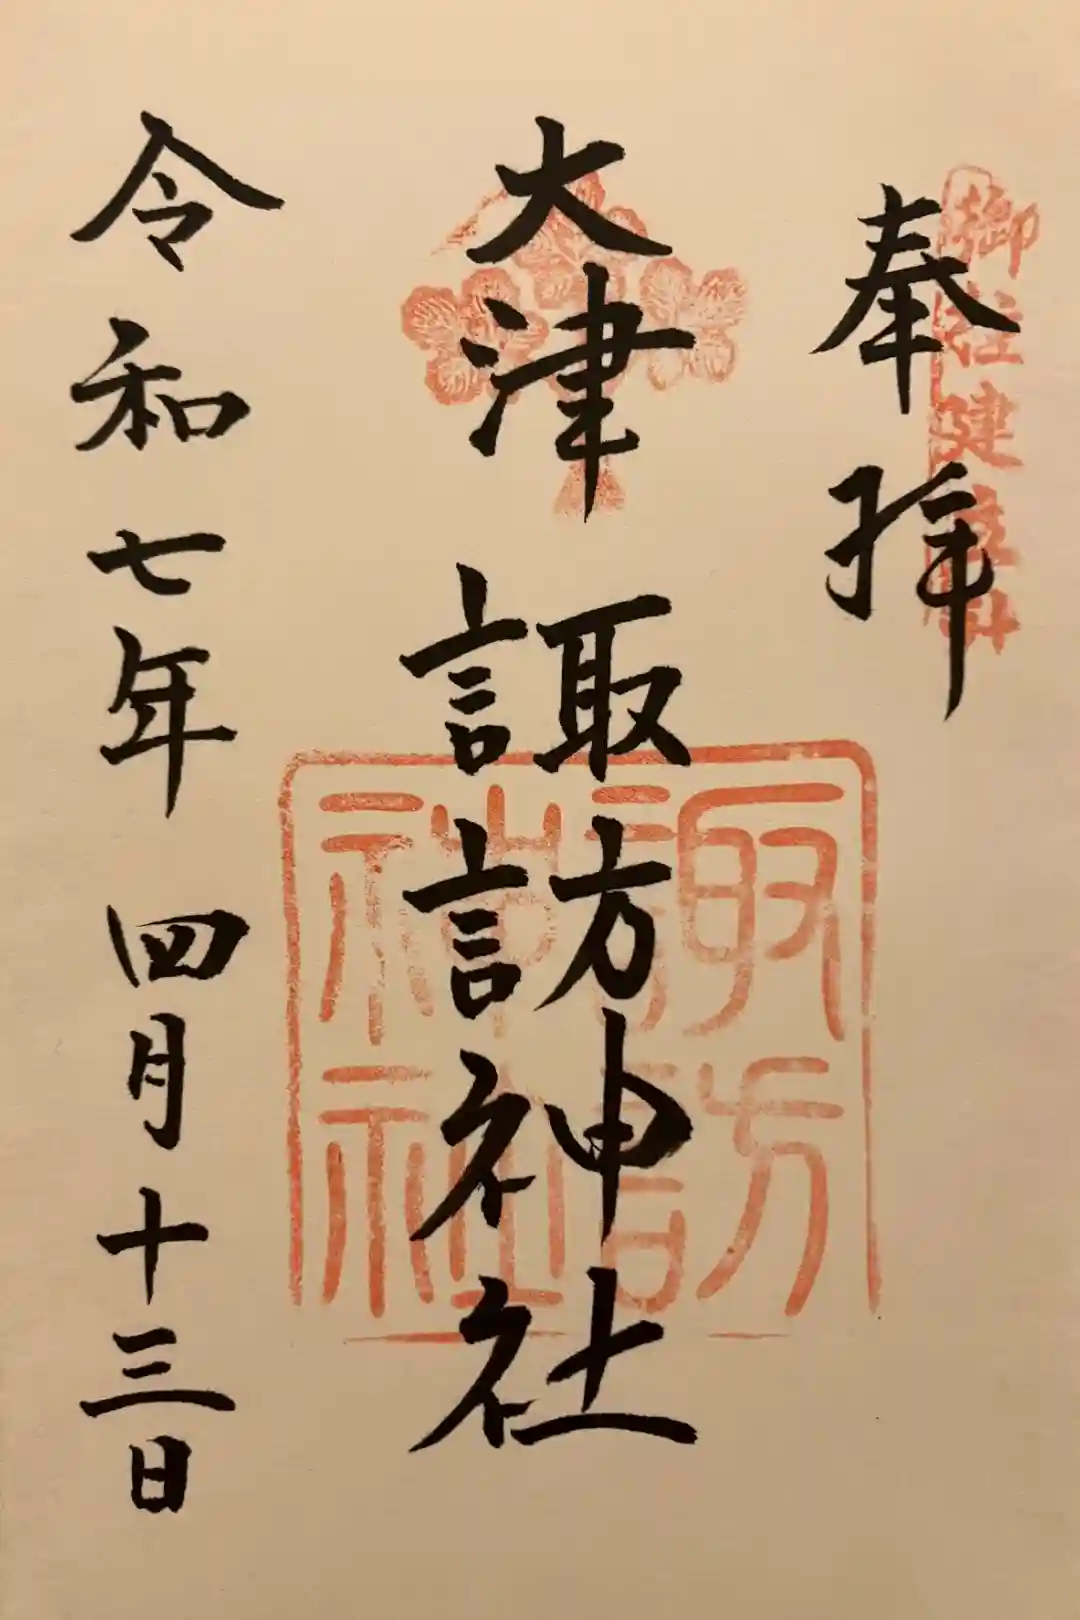 奉拝
大津諏訪神社
諏訪神社
令和七年
四月十三日